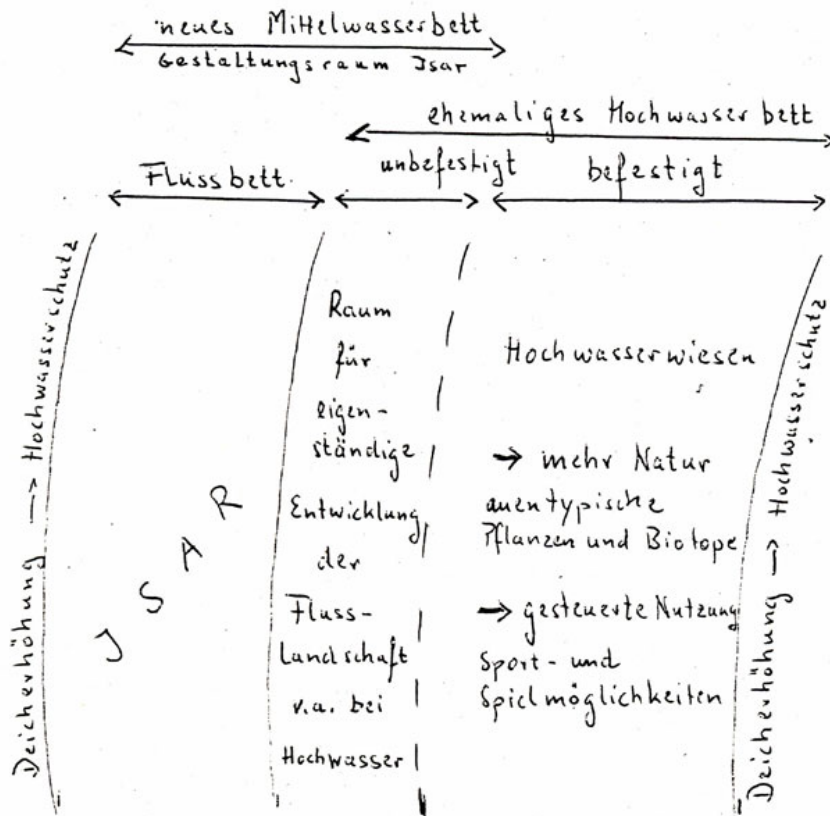 neues Mittelwasserbett
Gestaltungsraum Isar
ehemaliges Hochwasserbett
Flussbett
unbefestigt
befestigt
Deicherhöhung → Hochwasserschutz
ISAR
Raum
für
eigen-
ständige
Entwicklung
der
Fluss-
landschaft
v.a. bei
Hochwasser
Hochwasserwiesen
→ mehr Natur
auentypische
Pflanzen und Biotope
→ gesteuerte Nutzung
Sport- und
Spielmöglichkeiten
Deicherhöhung → Hochwasserschutz